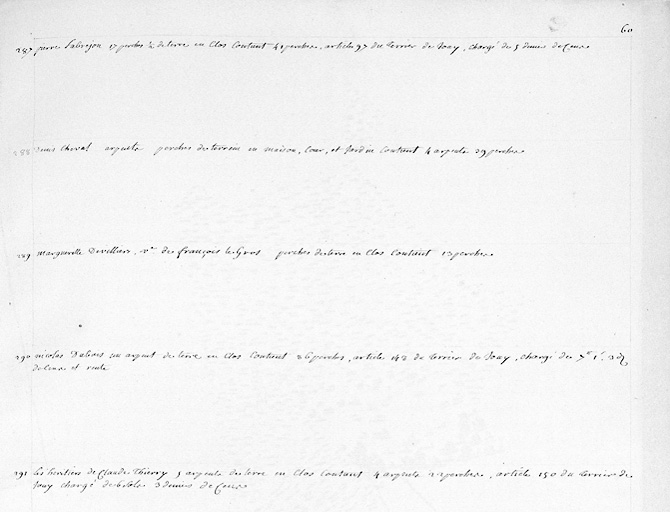 60
287 pierre Labrejou 17 perches ½ de terre en Clos Contant 41 perches, article 97 du terrier de Jouy, chargé de 5 deniers de Cens
288 Denis Cheval arpents perches de terrein en maison, Cour, et Jardin Contant 4 arpents 39 perches
289 Marguerite Devilliers, Ve de françois le Gros perches de terre en Clos Contant 13 perches
290 nicolas Dubois un arpent de terre en Clos Contant 86 perches, article 148 du terrier de Jouy, chargé de
de Cens et rente
291 les heritiers de Claude Thierry 5 arpents de terre en Clos Contant 4 arpents 22 perches, article 150 du terrier de
Jouy chargé de 6 sols 3 deniers de Cens